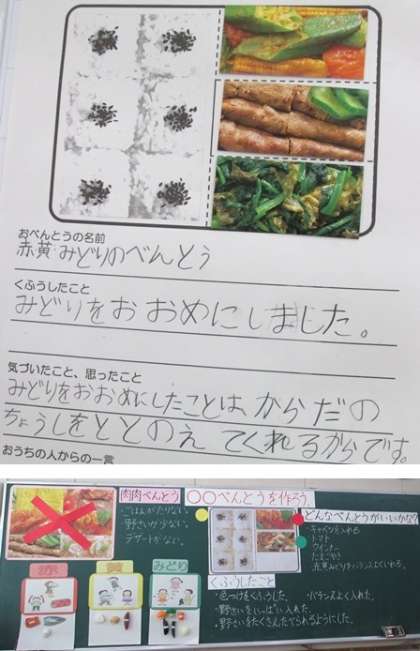 おべんとうの名前
赤黄みどりのべんとう
くふうしたこと
みどりをおおめにしました。
気づいたこと、思ったこと
みどりをおおめにしたことは、からだの
ちょうしをととのえてくれるからです。
おうちの人からの一言
肉肉べんとう
・ごはんがたりない。
・野さいが少ない。
・デザートがない。
〇〇べんとうを作ろう
どんなべんとうがいいかな?
・キャベツを入れる
・トマト
・ウインナー
・たまごやき
・赤黄みどりをバランスよくいれる。
赤
黄
みどり
くふうしたこと
・色つけをくふうした。
・バランスよく入れた。
・野さいをいっぱい入れた。
・野さいをたくさんたべられるようにした。